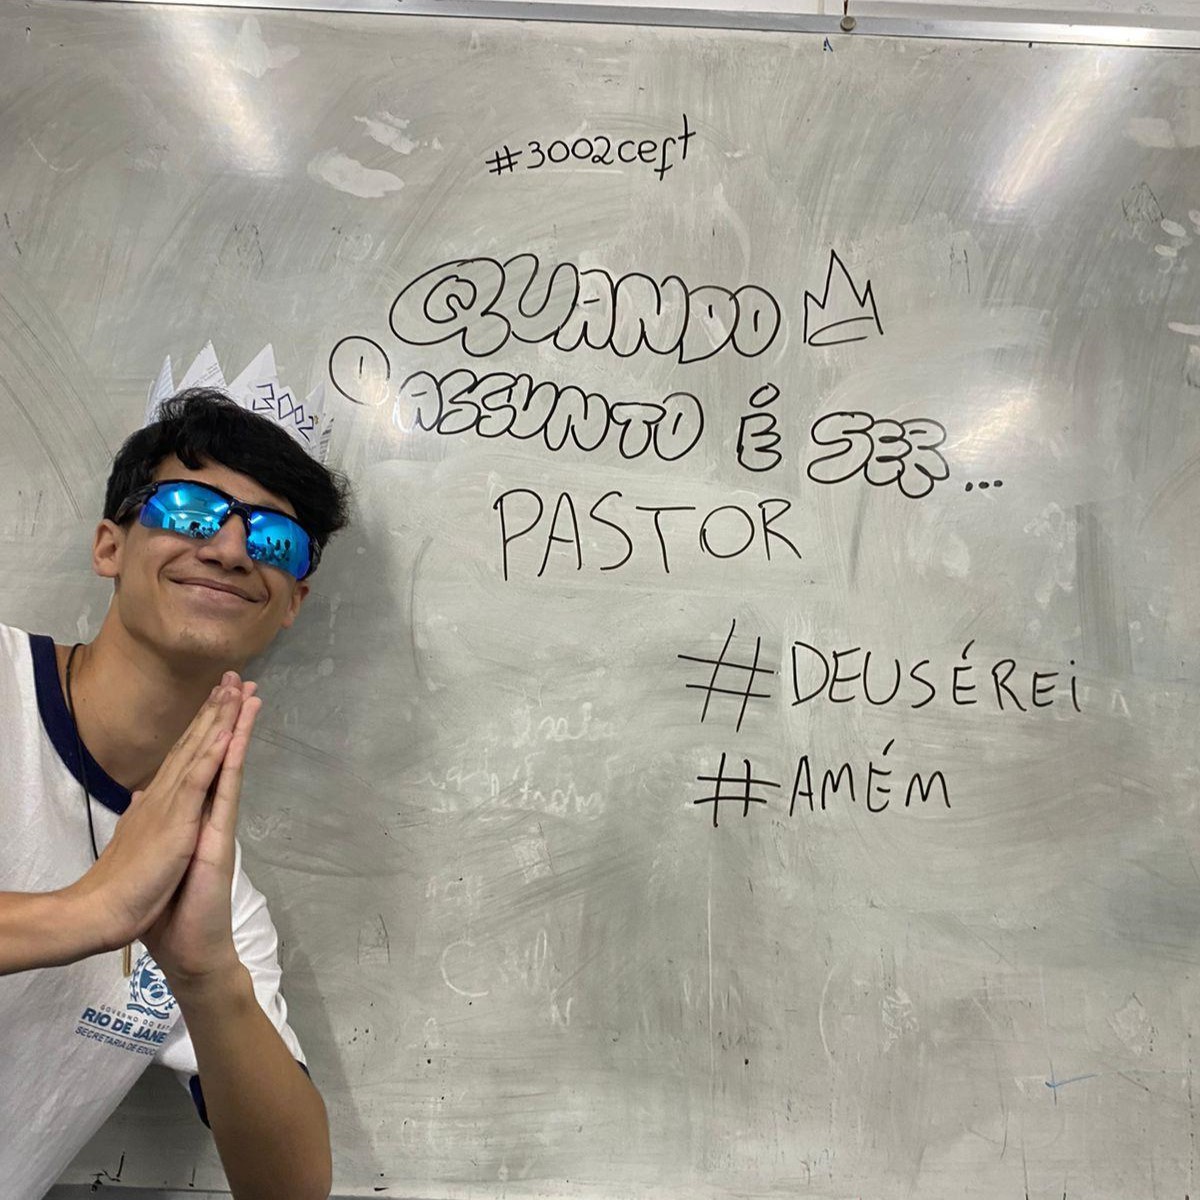 #3002ceft
QUANDO
O ASSUNTO É SER...
PASTOR
#DEUSÉREi
#AMÉM
3002
GOVERNO DO EST
RIO DE JANE
SECRETARIA DE EDUC